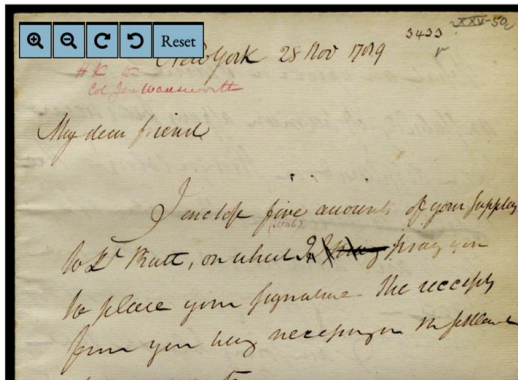 Reset
3433
XXV-50
New York 28 Nov 1789
HK to
Col Jer Wadsworth
My dear friend
I enclose five accounts of your supplys
to Lt Pratt, on which I pray you
to place your signature. The receipts
from you being necessary in the settlement